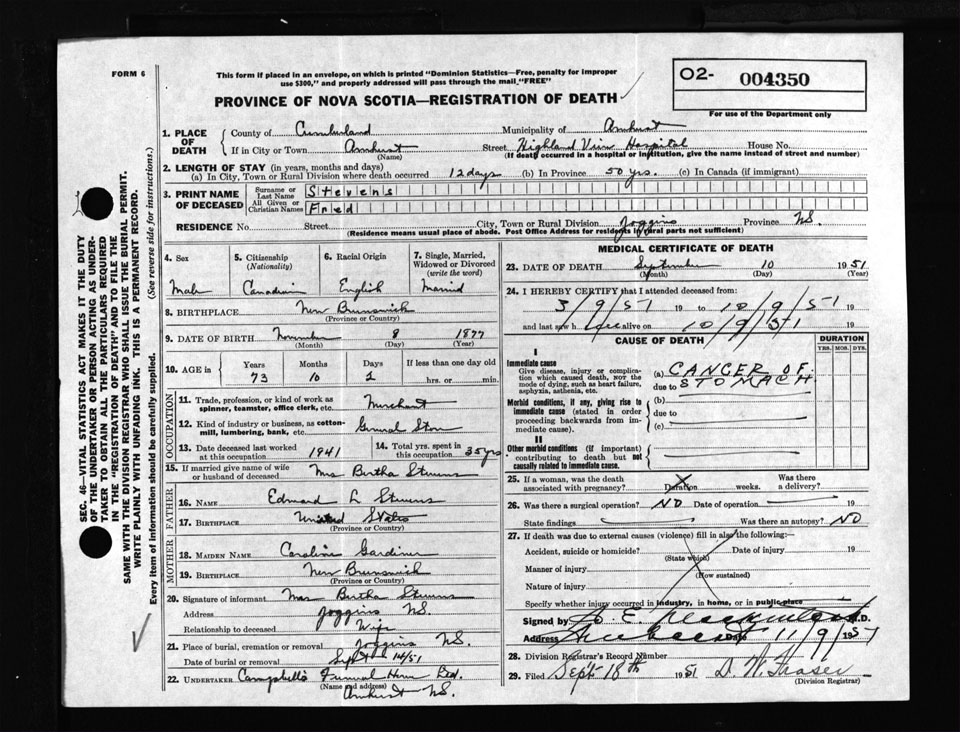 FORM 6
This form if placed in an envelope, on which is printed "Dominion Statistics—Free, penalty for improper
use $300," and properly addressed will pass through the mail "FREE"
O2- 004350
For use of the Department only
PROVINCE OF NOVA SCOTIA—REGISTRATION OF DEATH
1. PLACE OF DEATH
County of Cumberland Municipality of Amherst
If in City or Town Amherst Street Highland View Hospital House No.
(Name) (If death occurred in a hospital or institution, give the name instead of street and number)
2. LENGTH OF STAY (in years, months and days)
(a) In City, Town or Rural Division where death occurred 12 days (b) In Province 50 yrs. (c) In Canada (if immigrant)
3. PRINT NAME OF DECEASED
Surname or Last Name Stevens
All Given or Christian Names Fred
RESIDENCE No. Street City, Town or Rural Division Joggins Province NS.
(Residence means usual place of abode. Post Office Address for residents in rural parts not sufficient)
4. Sex 5. Citizenship (Nationality) 6. Racial Origin 7. Single, Married, Widowed or Divorced (write the word)
Male Canadian English Married
8. BIRTHPLACE New Brunswick
(Province or Country)
9. DATE OF BIRTH November 8 1877
(Month) (Day) (Year)
10. AGE in Years Months Days If less than one day old
73 10 2 hrs. or min.
OCCUPATION
11. Trade, profession, or kind of work as
spinner, teamster, office clerk, etc. Merchant
12. Kind of industry or business, as cotton-
mill, lumbering, bank, etc. General Store
13. Date deceased last worked at this occupation 1941 14. Total yrs. spent in this occupation 35 yrs
15. If married give name of wife
or husband of deceased Mrs Bertha Stevens
FATHER
16. NAME Edward L Stevens
17. BIRTHPLACE United States
(Province or Country)
MOTHER
18. MAIDEN NAME Caroline Gardiner
19. BIRTHPLACE New Brunswick
(Province or Country)
20. Signature of informant Mrs Bertha Stevens
Address Joggins NS.
Relationship to deceased Wife
21. Place of burial, cremation or removal Joggins NS.
Date of burial or removal Sept 14/51
22. UNDERTAKER Campbell's Funeral Home Ltd.
(Name and address) Amherst NS.
MEDICAL CERTIFICATE OF DEATH
23. DATE OF DEATH September 10 1951
(Month) (Day) (Year)
24. I HEREBY CERTIFY that I attended deceased from:
3/9/51 19 to 10/9/51 19
and last saw h alive on 10/9/51 19
CAUSE OF DEATH DURATION
YRS. MOS. DYS.
I
Immediate cause
Give disease, injury or complica-
tion which caused death, not the
mode of dying, such as heart failure,
asphyxia, asthenia, etc.
(a) CANCER OF
due to STOMACH
Morbid conditions, if any, giving rise to
immediate cause (stated in order
proceeding backwards from im-
mediate cause).
(b)
due to
(c)
II
Other morbid conditions (if important)
contributing to death but not
causally related to immediate cause.
25. If a woman, was the death
associated with pregnancy? Duration weeks. Was there a delivery?
26. Was there a surgical operation? NO Date of operation 19
State findings Was there an autopsy? NO
27. If death was due to external causes (violence) fill in also the following:—
Accident, suicide or homicide? Date of injury 19
(State which)
Manner of injury
(How sustained)
Nature of injury
Specify whether injury occurred in industry, in home, or in public place
Signed by E. M.D.
Address Date 11/9/1951
28. Division Registrar's Record Number
29. Filed Sept 18th 1951 D. W. Fraser
(Division Registrar)
SEC. 46—VITAL STATISTICS ACT MAKES IT THE DUTY
OF THE UNDERTAKER OR PERSON ACTING AS UNDER-
TAKER TO OBTAIN ALL THE PARTICULARS REQUIRED
IN THE "REGISTRATION OF DEATH" AND TO FILE THE
SAME WITH THE DIVISION REGISTRAR WHO SHALL ISSUE THE BURIAL PERMIT.
WRITE PLAINLY WITH UNFADING INK. THIS IS A PERMANENT RECORD.
Every item of information should be carefully supplied. (See reverse side for instructions.)